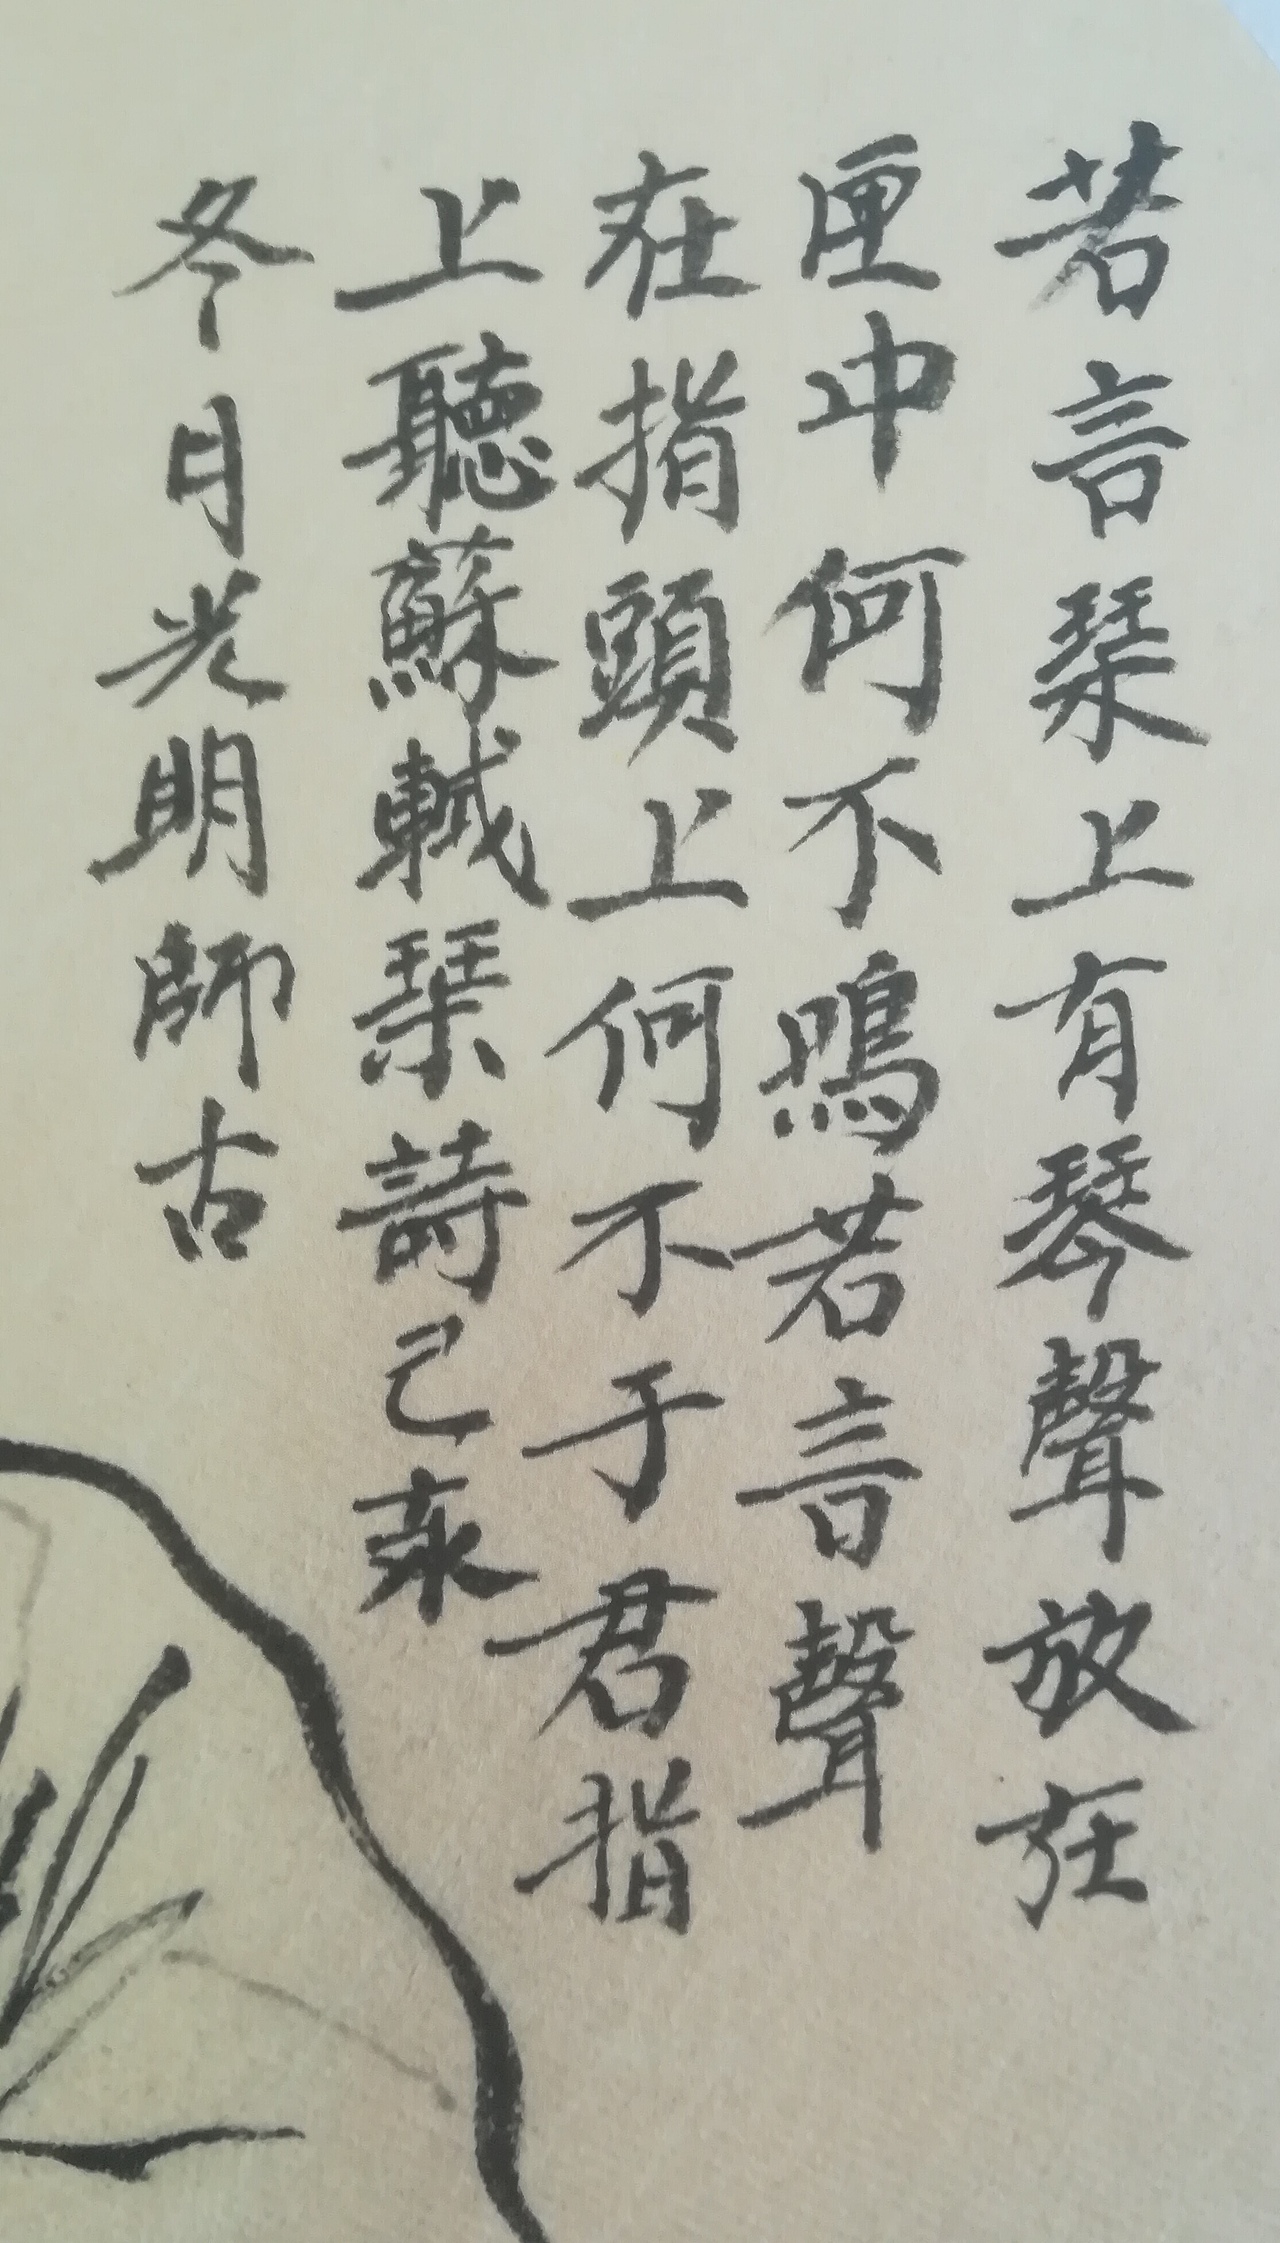 若言琹上有琴聲放在
匣中何不鳴若言聲
在指頭上何不于君指
上聽蘇軾琹詩己亥
冬月光明師古